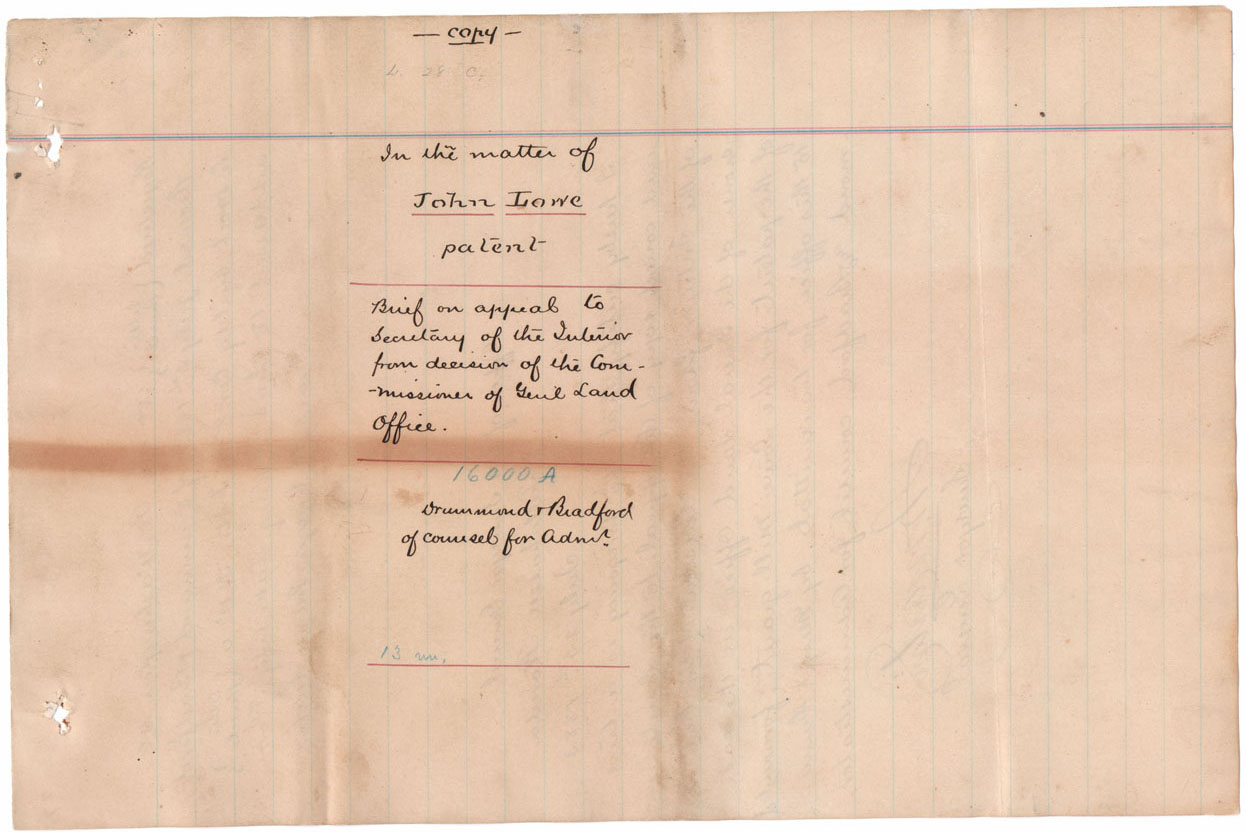 — copy —
In the matter of
John Lowe
patent
Brief on appeal to
Secretary of the Interior
from decision of the Com-
-missioner of Gen'l Land
Office.
16000 A
Drummond & Bradford
of counsel for Admr.
13